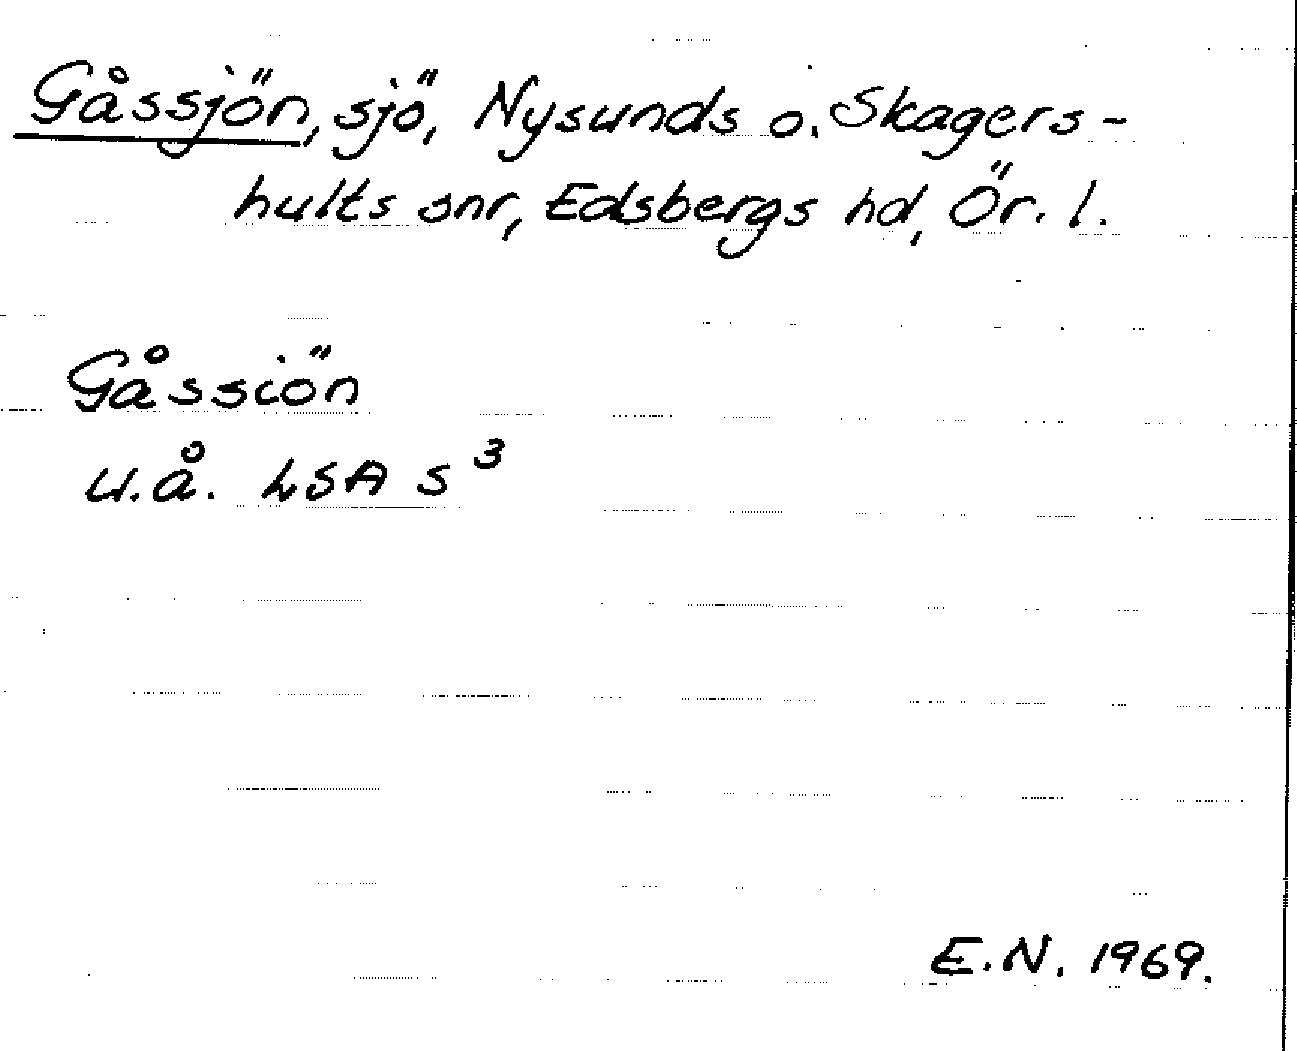 Gåssjön, sjö, Nysunds o. Skagers-
hults snr, Edsbergs hd, Ör. l.
Gåssiön
u.å. LSA S³
E.N. 1969.